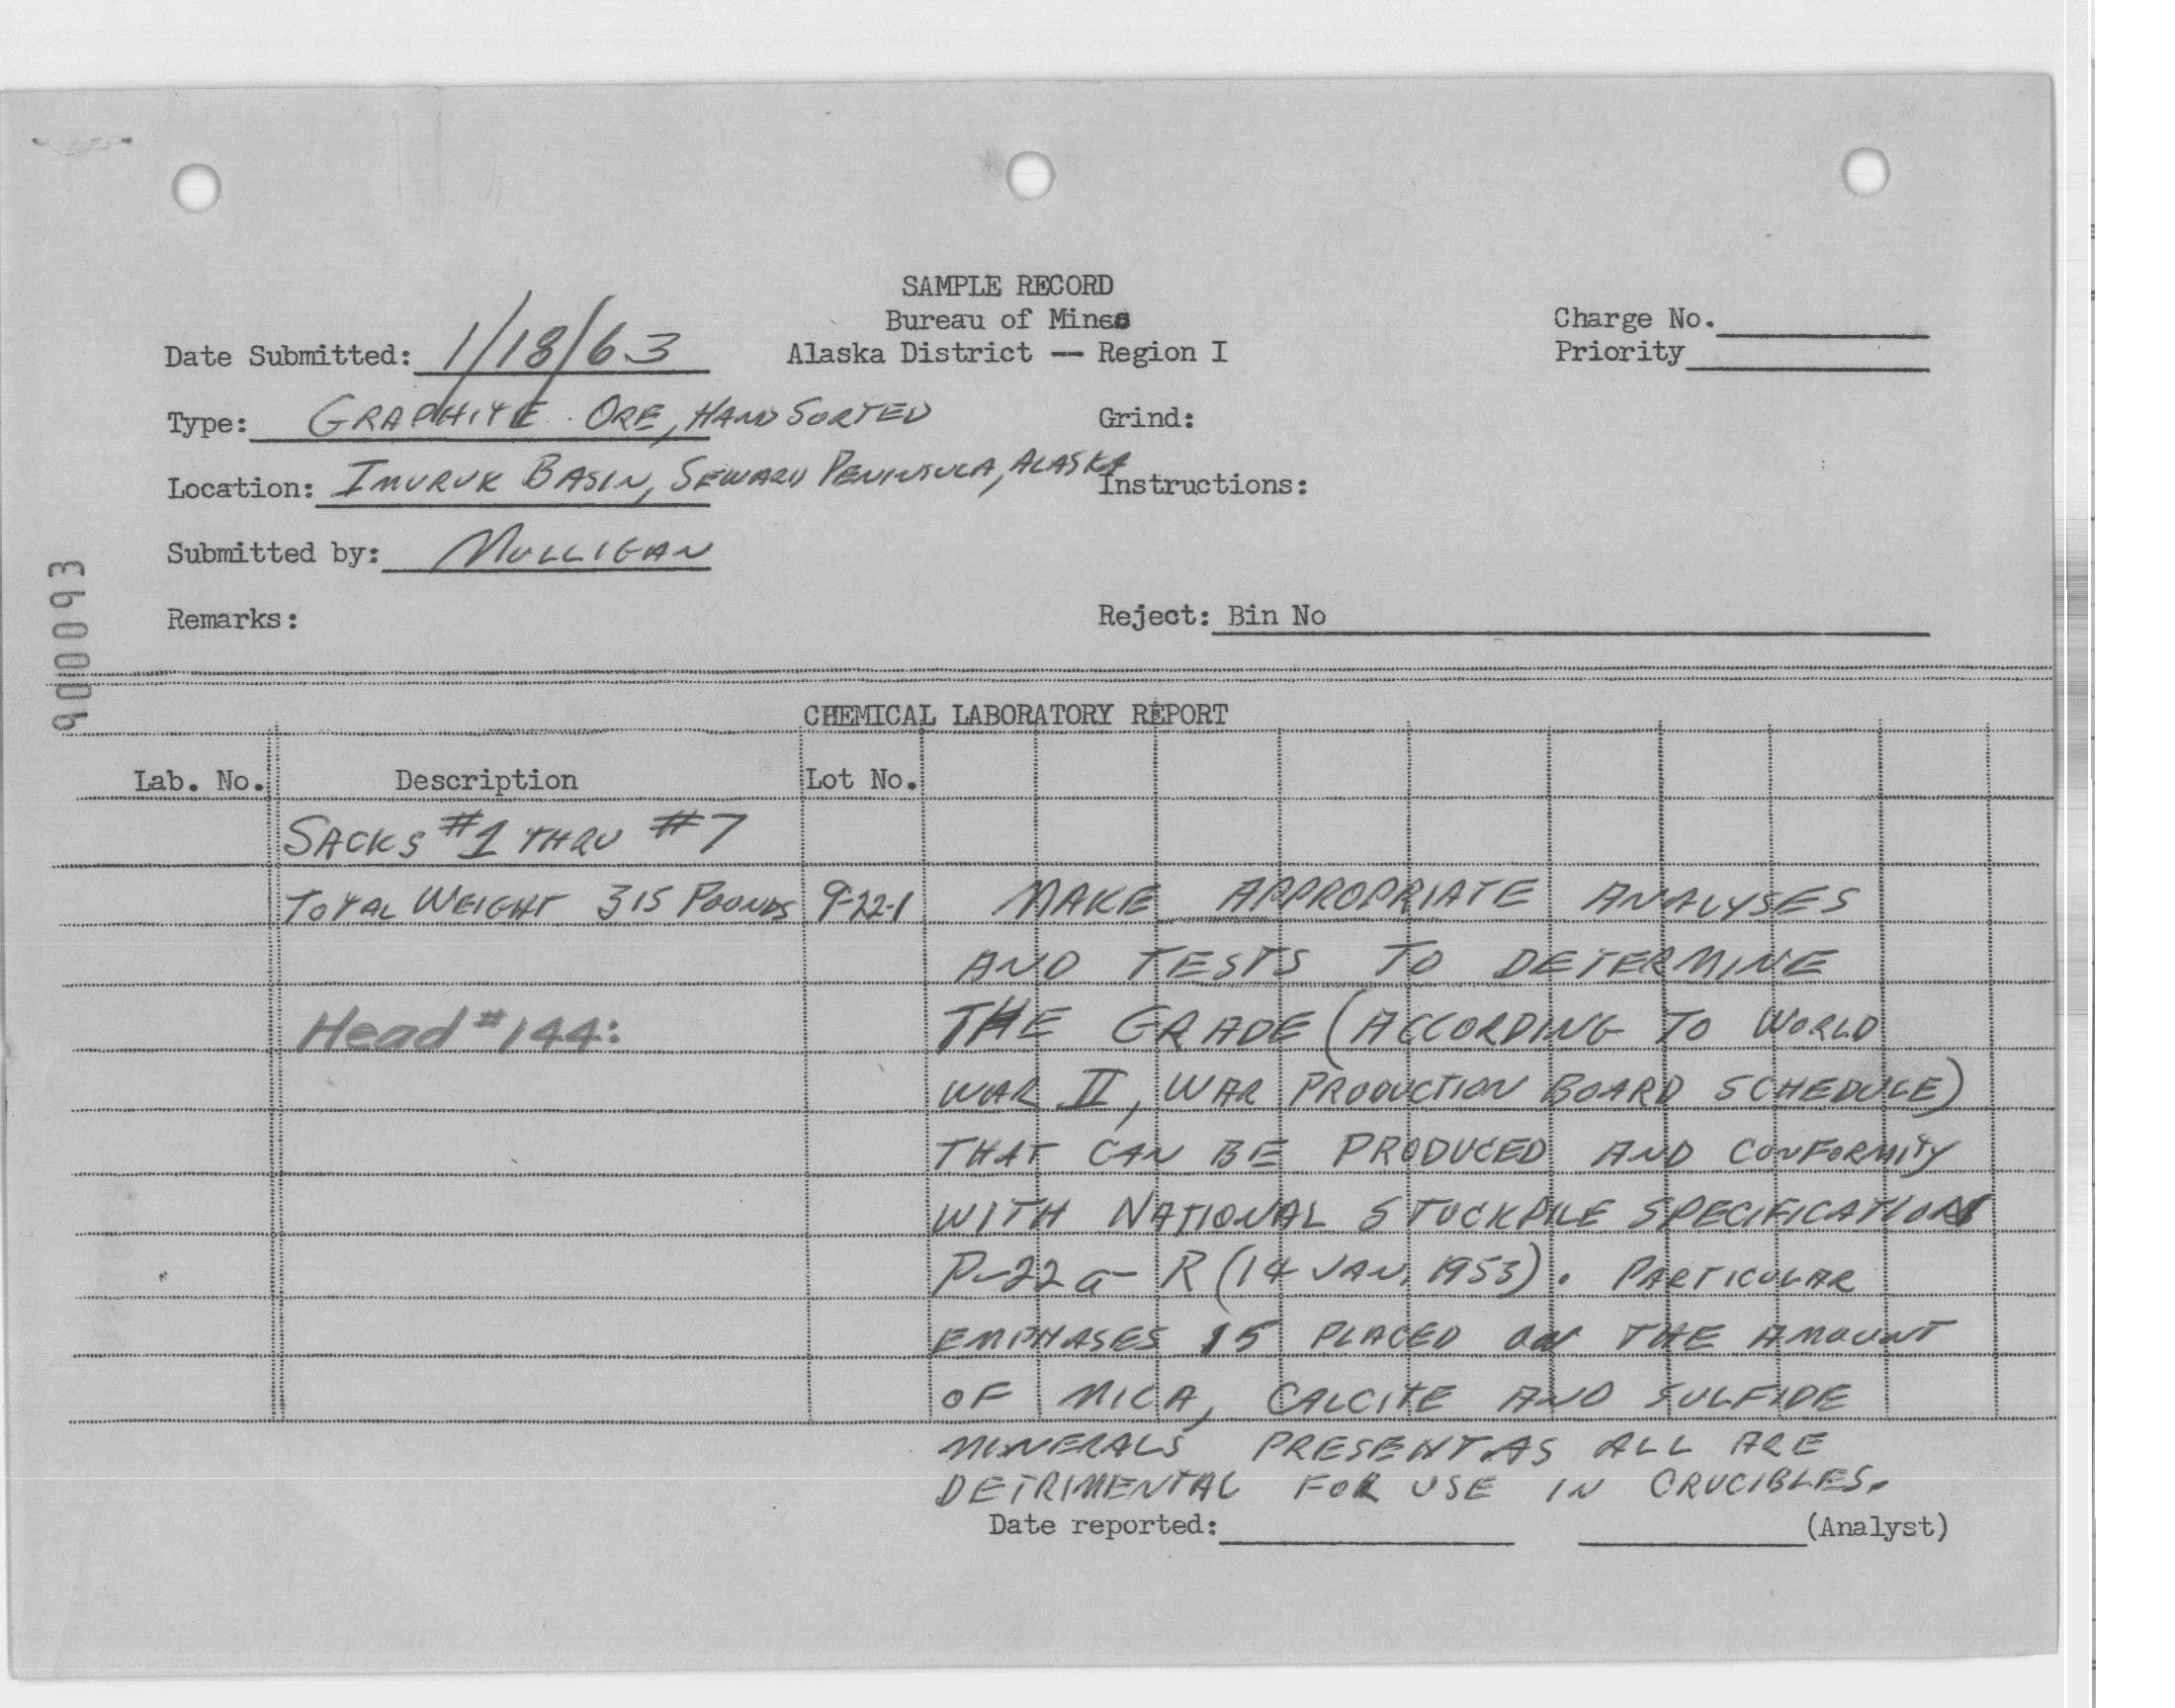 SAMPLE RECORD
Bureau of Mines
Alaska District -- Region I
Charge No.
Priority
Date Submitted: 1/18/63
Type: GRAPHITE ORE, HAND SORTED
Grind:
Location: IMURUK BASIN, SEWARD PENINSULA, ALASKA
Instructions:
Submitted by: MULLIGAN
Remarks:
Reject: Bin No
CHEMICAL LABORATORY REPORT
Lab. No. Description Lot No.
SACKS #1 THRU #7
TOTAL WEIGHT 315 POUNDS 9-22-1 MAKE APPROPRIATE ANALYSES
AND TESTS TO DETERMINE
Head #144: THE GRADE (ACCORDING TO WORLD
WAR II, WAR PRODUCTION BOARD SCHEDULE)
THAT CAN BE PRODUCED AND CONFORMITY
WITH NATIONAL STOCKPILE SPECIFICATIONS
P-22a-R (14 JAN, 1953). PARTICULAR
EMPHASES IS PLACED ON THE AMOUNT
OF MICA, CALCITE AND SULFIDE
MINERALS PRESENT AS ALL ARE
DETRIMENTAL FOR USE IN CRUCIBLES.
Date reported: (Analyst)